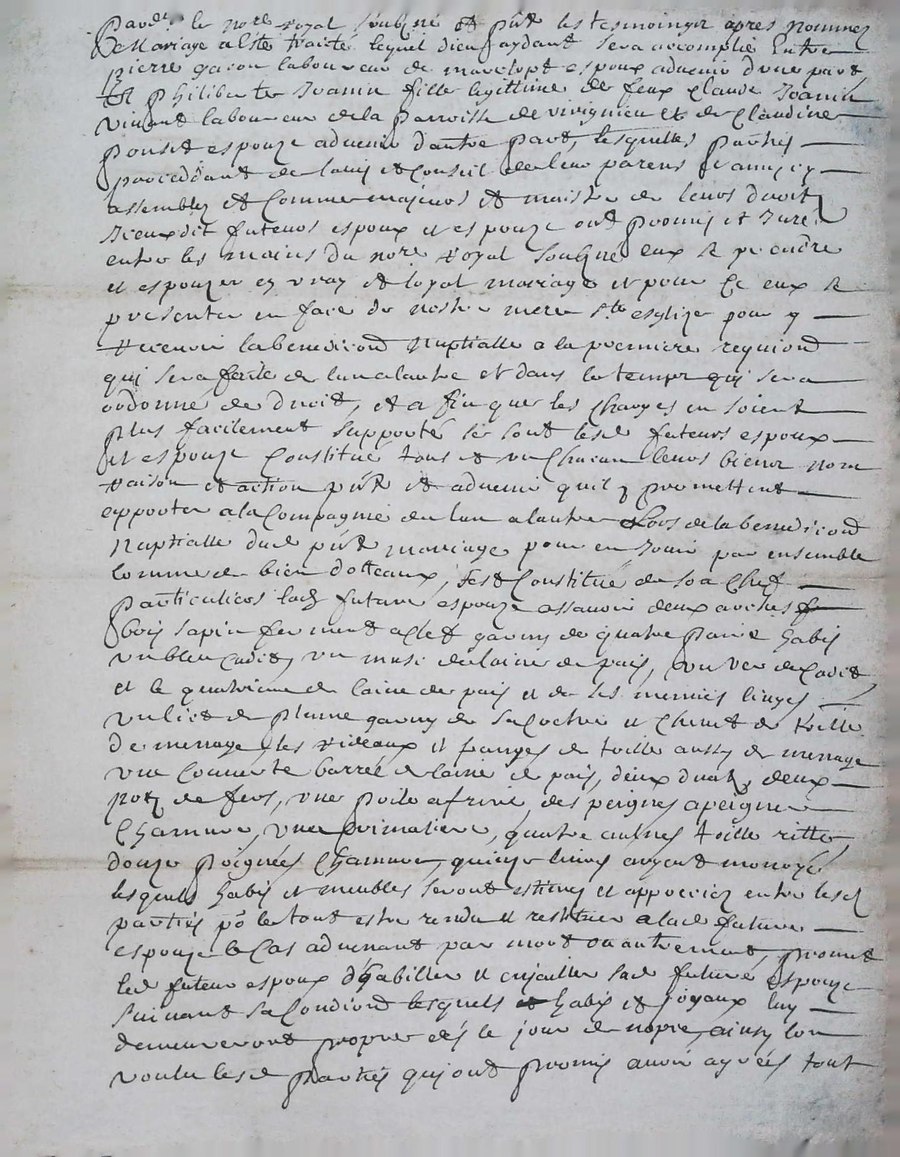 Pard. le nore royal soubzné et pnt les tesmoingz apres nommez
De Mariage a esté traité lequel dieu aydant sera accomply Entre
pierre gacon laboureur de espoux advenir d'une part
Et philiberte Joanin fille legittime de feux Claude Joanin
vivant laboureur de la parroisse de virigneu et de Claudine
ponset espouze advenir d'autre part, lesquelles parties
procedant de lauis et Conseil de leur parens et amis icy
assemblez et Comme majeurs et maistre de leurs droitz
Iceuxdit futeurs espoux et espouze ont promis et Juré
entre les mains du nore royal soubzné eux R prendre
et espouzer en vray et loyal mariage et pour ce eux R
presenter en face de nostre mere ste esglize pour y
recevoir la benediond nuptialle a la premiere requiond
qui sera faite de lun a lautre et dans le temps qui sera
ordonné de droit, et a fin que les charges en soient
plus facilement supporté se sont lesd futeurs espoux
et espouze Constitué tous et un Chacun leurs biens nom
raison et action pnt et advenir quilz promettent
apporter a la Compagnie de lun a lautre Lors de la benediond
nuptialle dud pnt mariage pour en Jouir par ensemble
comme de bien dotteaux, sest Constitué de son Chef
particuliers lad future espouze assavoir deux arches
bois sapin fermant a clef garny de quatre
un bleu cadis, un muse de laine de pais, un ver de Cadis
et le quatrieme de laine de pais et de ses menues linges
un lict de plume garny de sa coetre et Chevet de toille
de menage, les rideaux et franges de toille aussy de menage
une Couverte barrée de laine de pais, deux draps, deux
potz de fers, une poile a frire, des peignes a peigner
Chamure, une, quatre aulnes toille ritte
douze poignées Chamure, quinze livres argent monoyé
lesquels habis et meubles seront estimes et appreciez entre lesd
parties po le tout estre rendu et restituer a lad future
espouze le Cas advenant par mort ou autrement, promet
led futeur espoux d'habiller et enjailler sad future espouze
suivant sa Condiond lesquels habis et joyaux luy
demeureront propres dès le jour de nopce, ainsy lon
voulu lesd parties qui ont promis avoir agrées tout